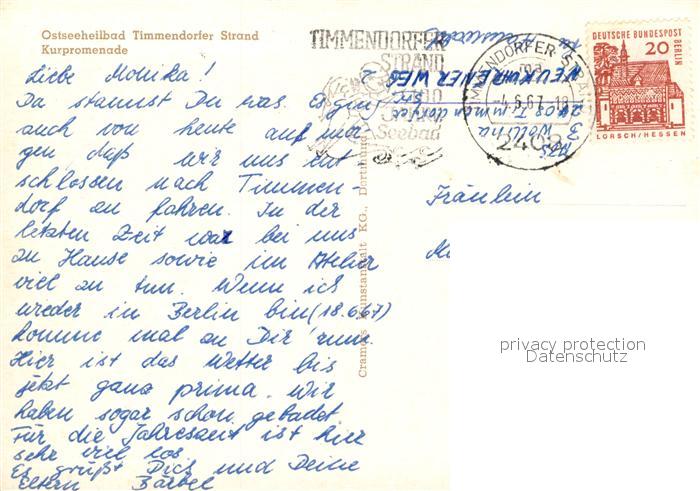 Ostseeheilbad Timmendorfer Strand
Kurpromenade
Liebe Monika!
Da staunst Du was. Es ging
auch von heute auf mor-
gen daß wir uns ent
schlossen nach Timmen-
dorf zu fahren. In der
letzten Zeit war bei uns
zu Hause sowie im Atelier
viel zu tun. Wenn ich
wieder in Berlin bin (18.6.67)
komme mal zu Dir rum.
Hier ist das Wetter bis
jetzt ganz prima. Wir
haben sogar schon gebadet
Für die Jahreszeit ist hier
sehr viel los.
Es grüßt Dich und Deine
Eltern Bärbel
Cramers Kunstanstalt KG., Dortmund
TIMMENDORFER
STRAND
Seebad
TIMMENDORFER STRAND
-4.6.67.-18
2408
NEUKUHRENER WEG 2
2408 Timmendorfer
DEUTSCHE BUNDESPOST
BERLIN
20
LORSCH/HESSEN
Fräulein
privacy protection
Datenschutz